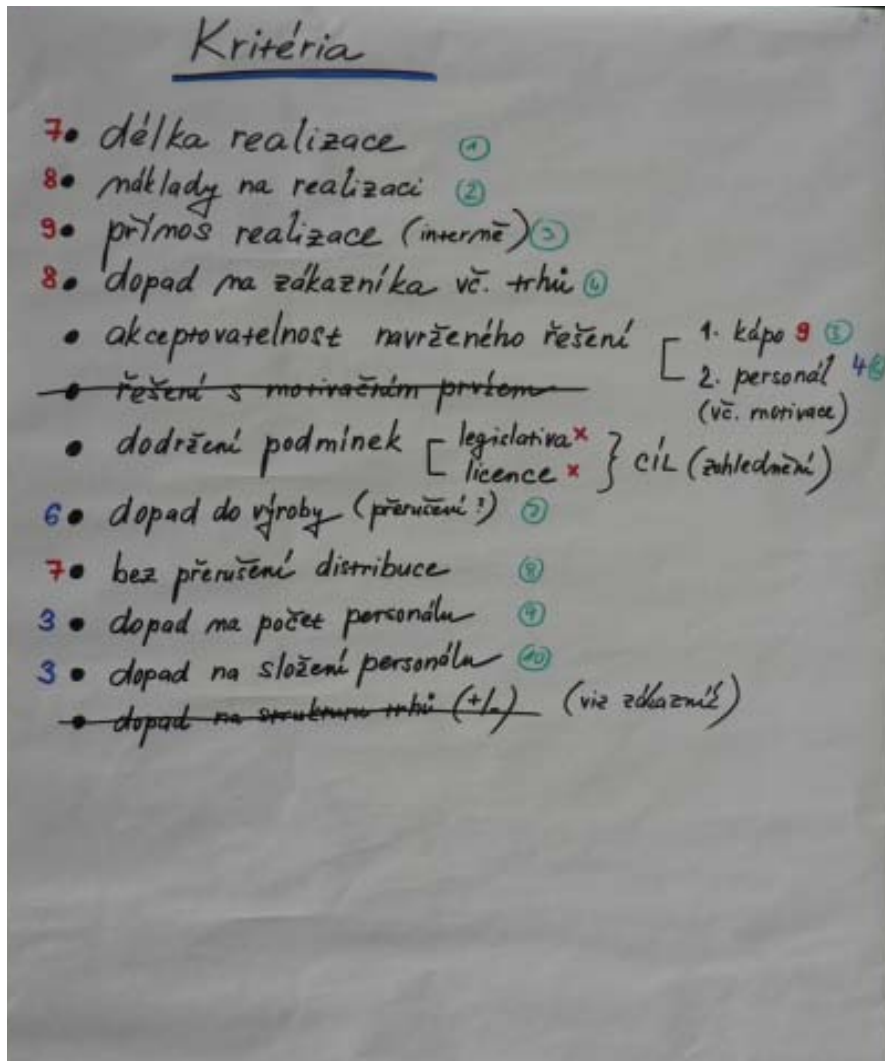 Kritéria
7 • délka realizace ①
8 • náklady na realizaci ②
9 • přínos realizace (interně) ③
8 • dopad na zákazníka vč. trhů ④
• akceptovatelnost navrženého řešení [ 1. kápo 9 ⑤
2. personál 4 ⑥
(vč. motivace)
• řešení s motivačním prvkem
• dodržení podmínek [ legislativa x
licence x } CÍL (zohlednění)
6 • dopad do výroby (přerušení?) ⑦
7 • bez přerušení distribuce ⑧
3 • dopad na počet personálu ⑨
3 • dopad na složení personálu ⑩
• dopad na strukturu trhů (+/-) (viz zákazník)